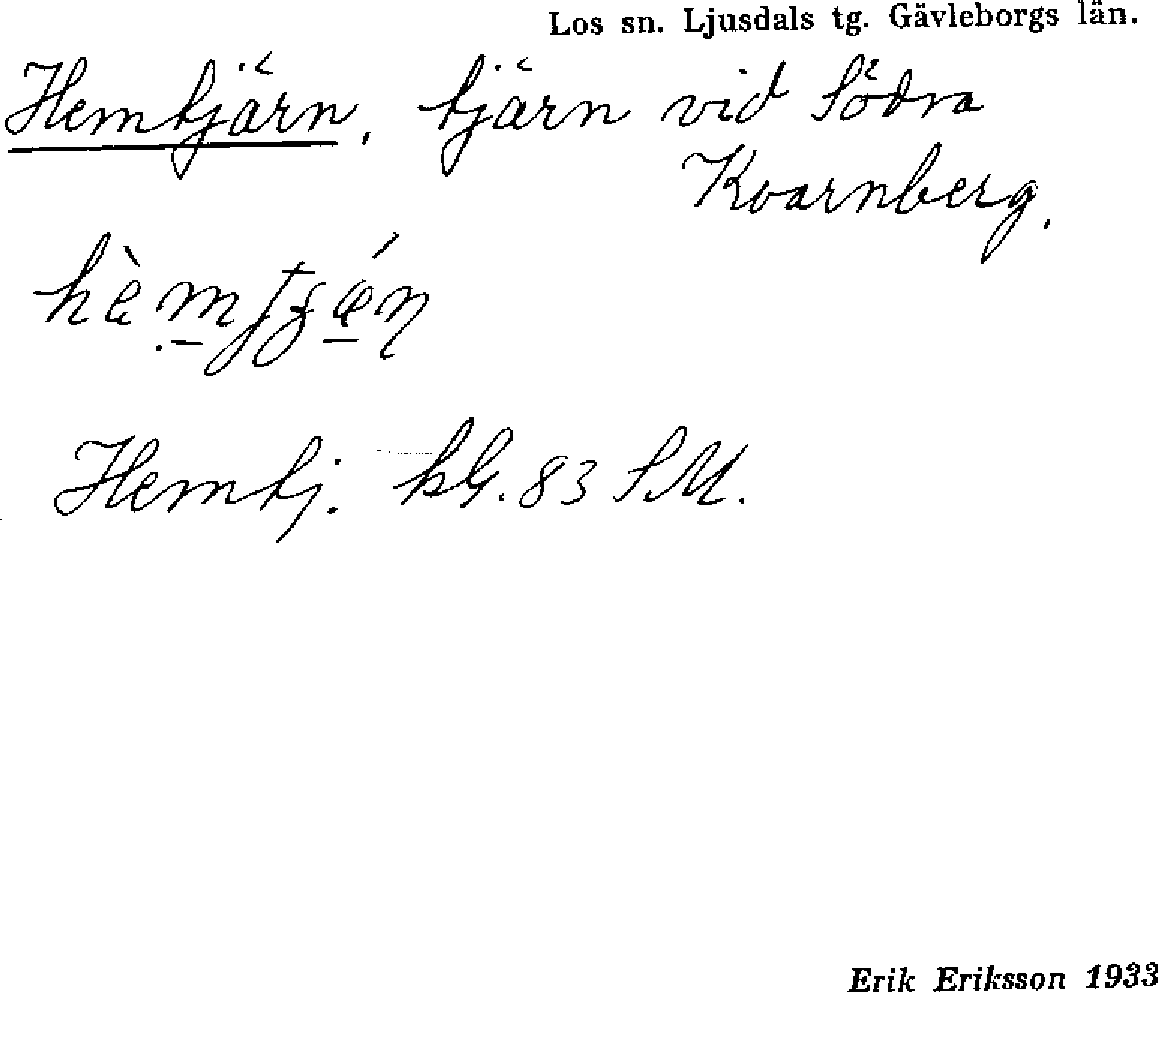 Los sn. Ljusdals tg. Gävleborgs län.
Hemtjärn, tjärn vid Södra
Kvarnberg.
Hemtj. bl. 83 SM.
Erik Eriksson 1933